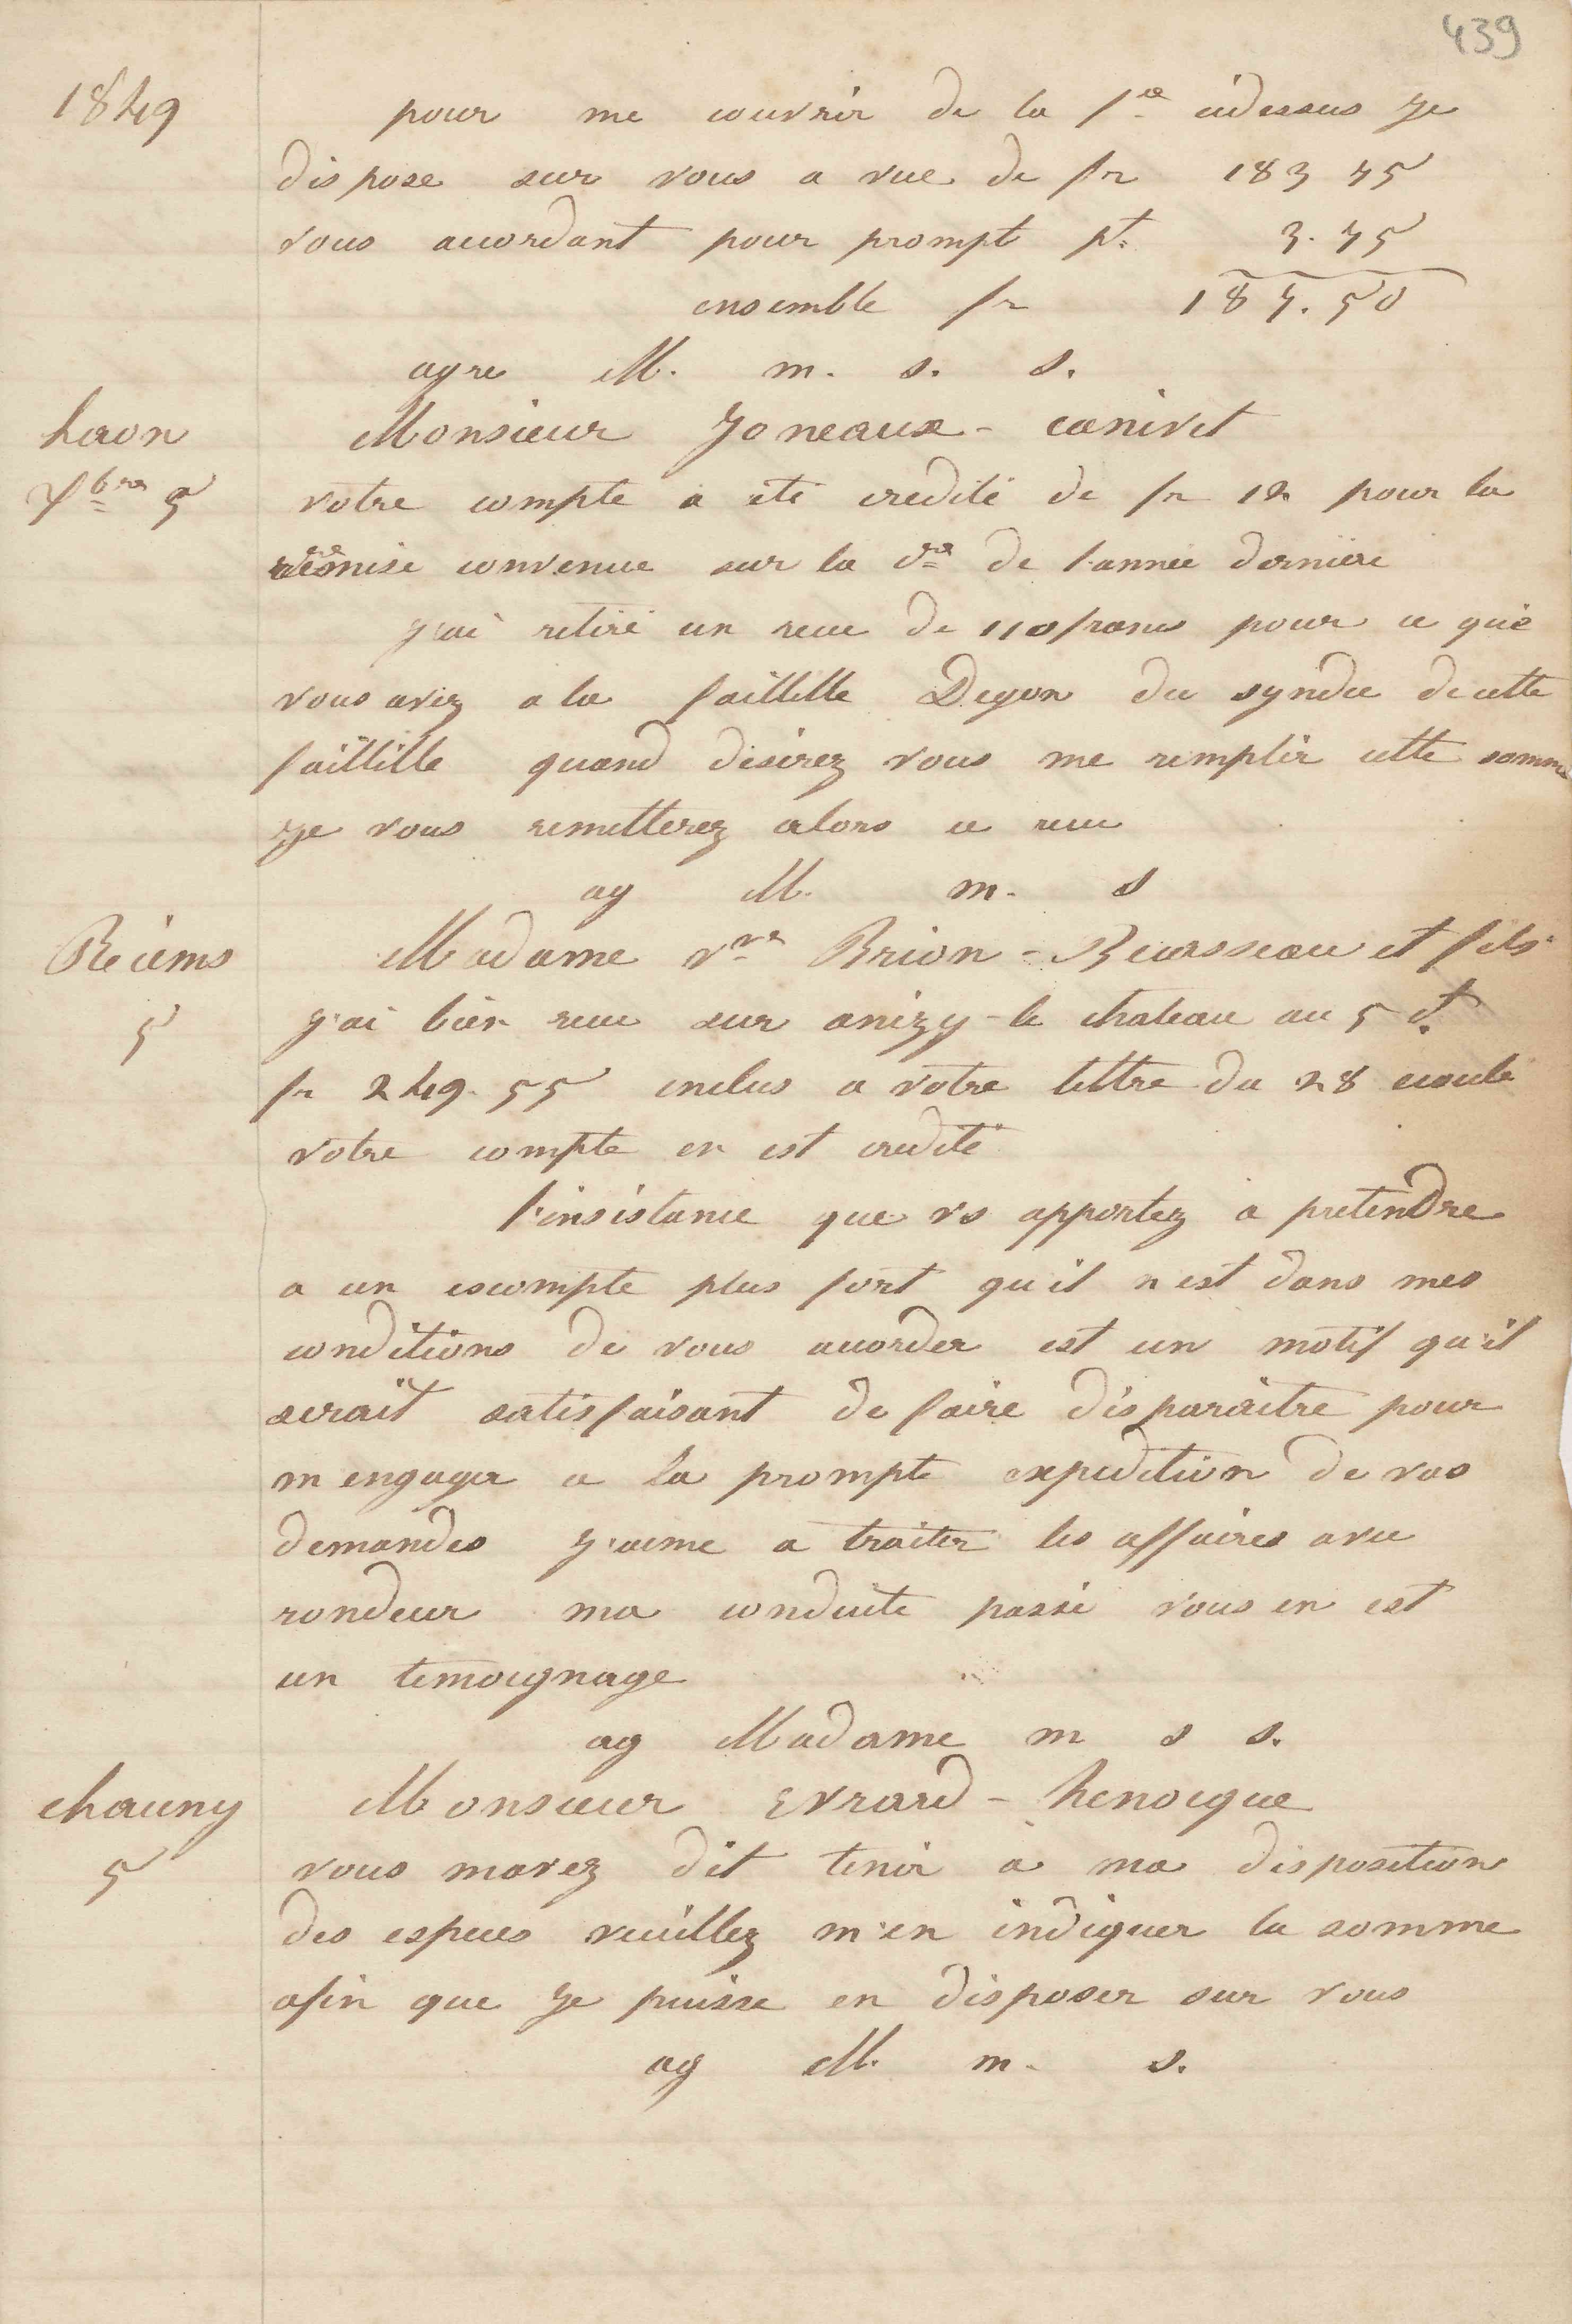 439
1849
pour me couvrir de la f.re cidessus je
dispose sur vous a vue de fr 183 75
vous accordant pour prompt pt. 3.75
ensemble fr 187.50
agre M. m. s. s.
Laon Monsieur Joneaux - canivet
7bre 5 votre compte a été credité de fr 12 pour la
remise convenue sur la dre de l'année derniere
j'ai retiré un recu de 110 francs pour ce que
vous aviez a la faillille Degon du syndic de cette
faillille quand désirez vous me remplir cette somme
je vous remetterez alors ce recu
ag M. m. s
Reiems Madame vve Brion - Beuasseau et fils
5 j'ai bien recu sur anizy-le chateau au 5 ct.
fr 249.55 inclus a votre lettre du 28 ecoulé
votre compte en est credité
l'insistance que vs apportez a pretendre
a un escompte plus fort qu'il n est dans mes
conditions de vous accorder est un motif qu'il
serait satisfaisant de faire disparaitre pour
m engager a la prompte expedition de vos
demandes j'aime a traiter les affaires avec
rondeur ma conduite passé vous en est
un temoignage
ag Madame m s s.
chauny Monsieur Evrard - henocque
5 vous mavez dit tenir a ma disposition
des especes veuillez m'en indiquer la somme
afin que je puisse en disposer sur vous
ag M. m. s.